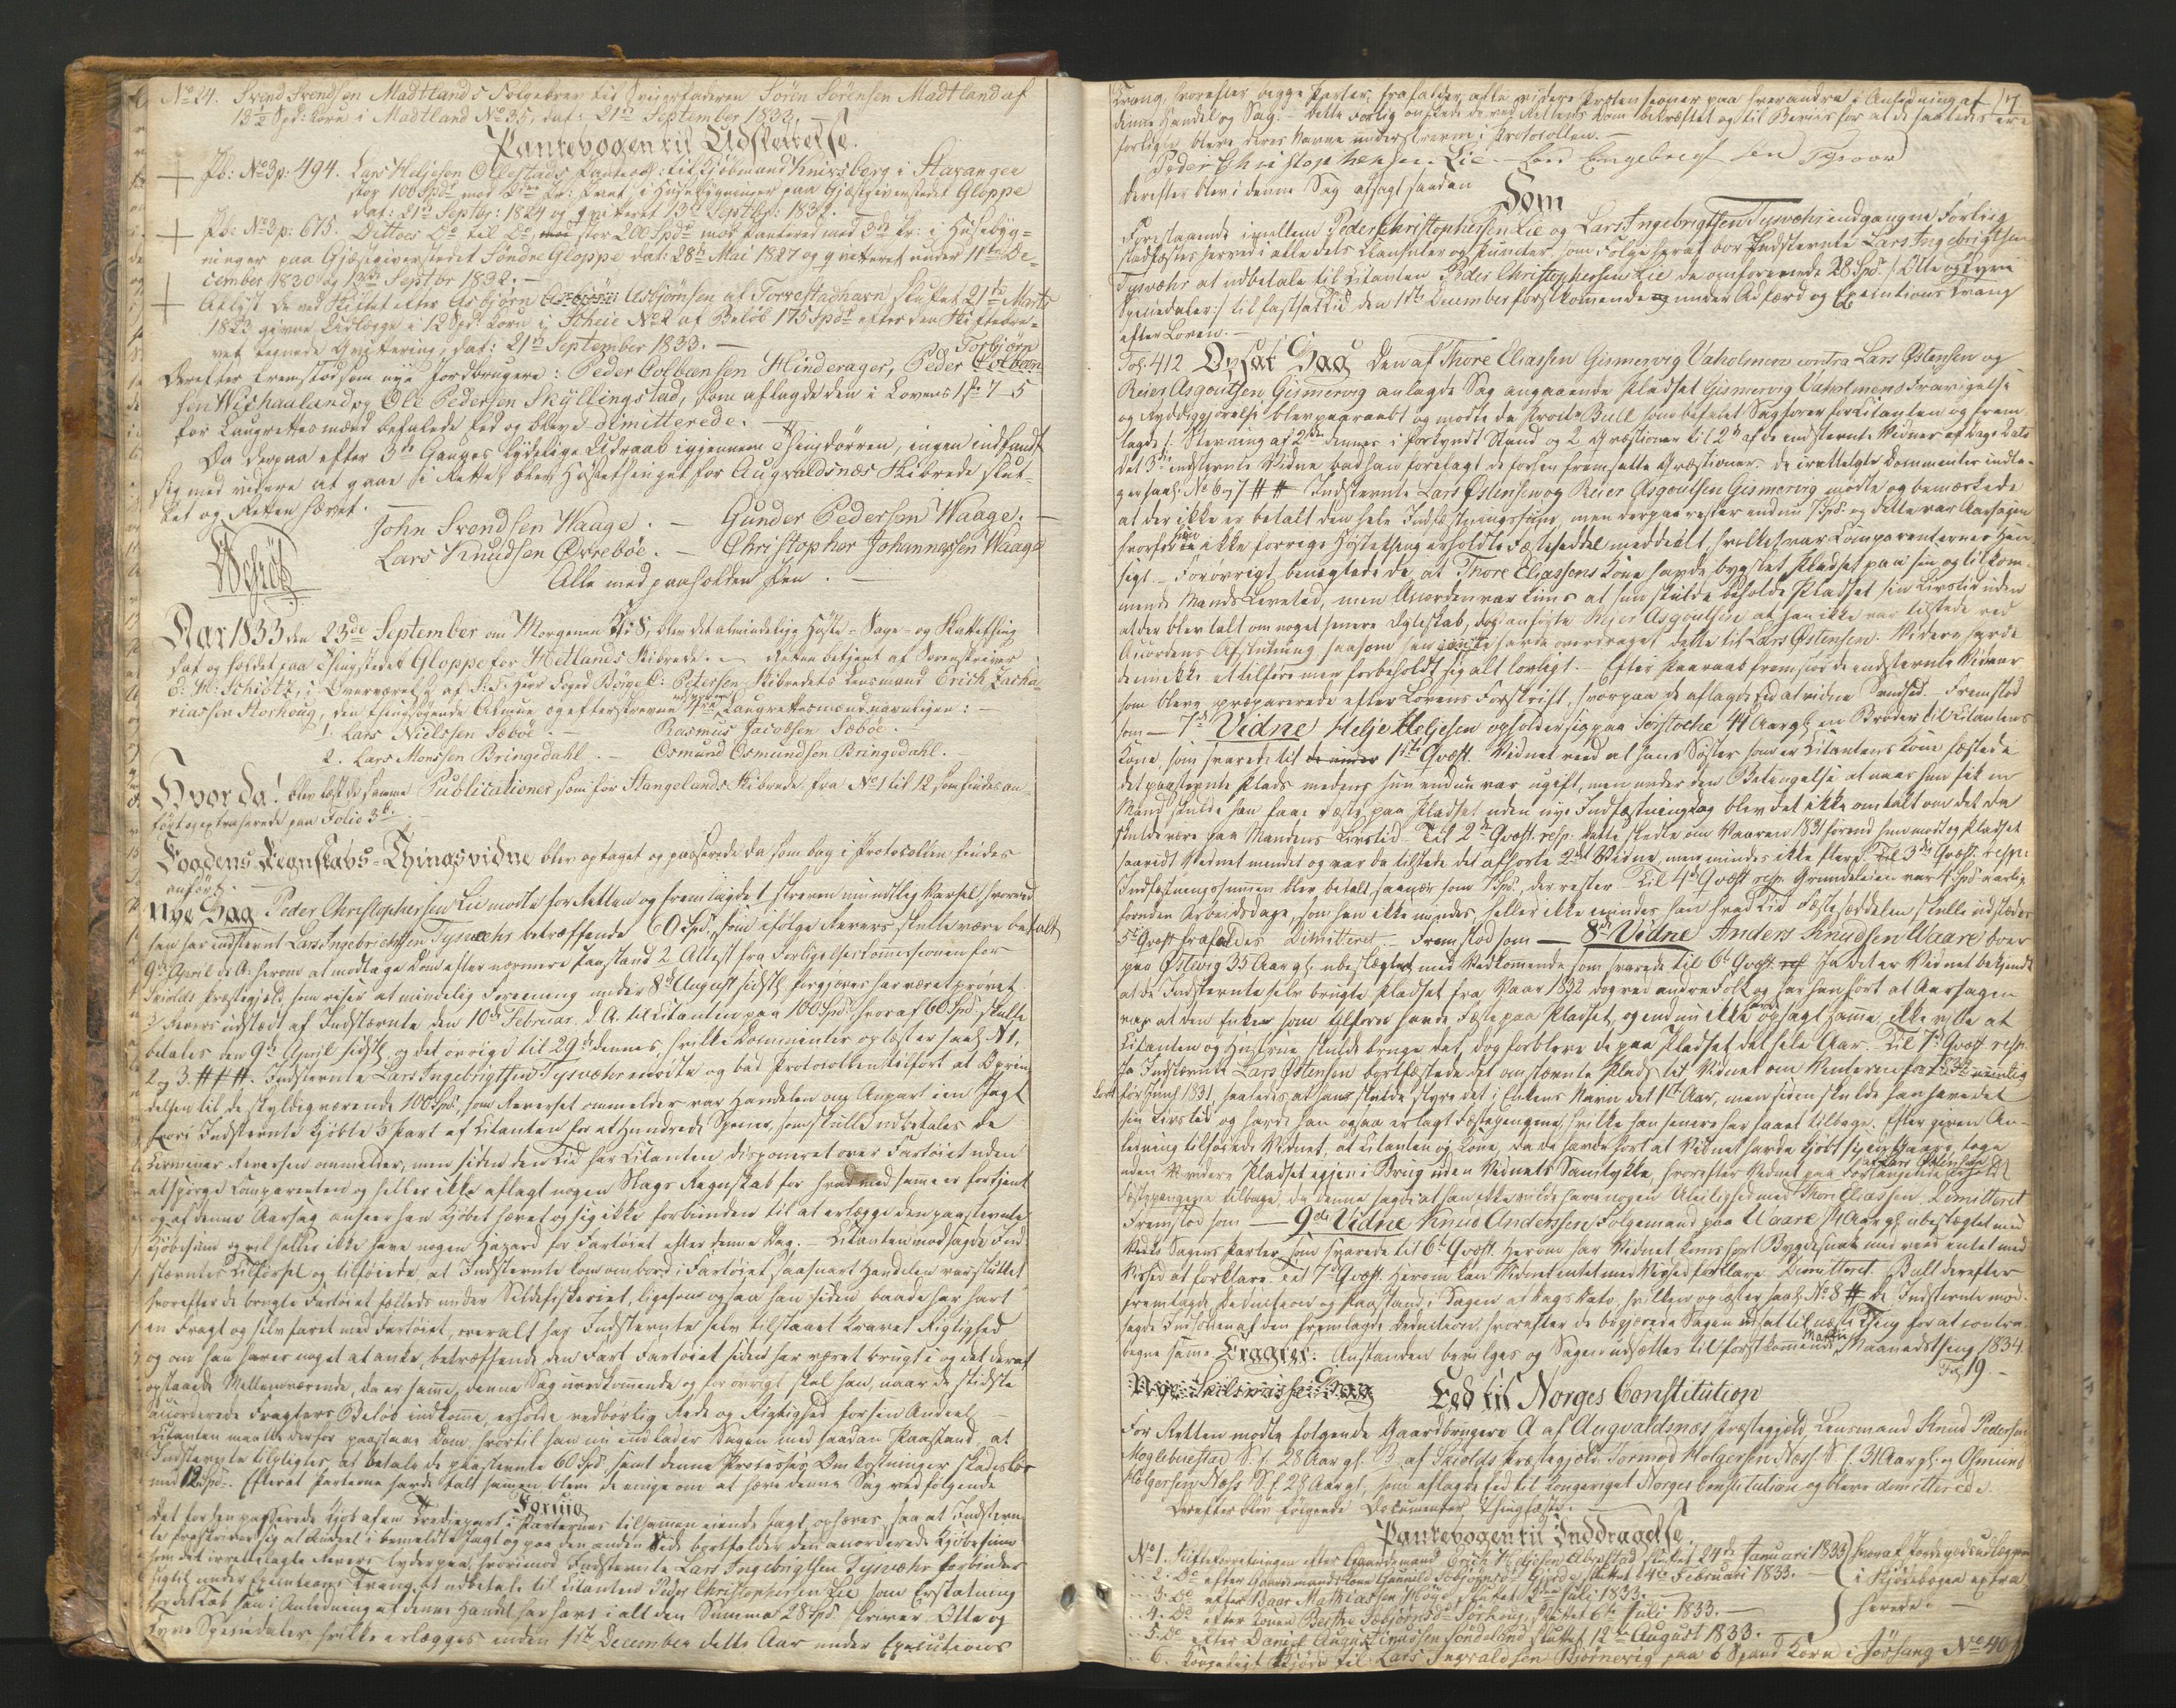 No 24. Svend Svendsen Madtlands Følgebrev tid Svigerfaderen Sören Sörensen Madtland af
13½ Spd: Korn i Madtland No 35, dat: 21de September 1833.
Pantebogen til Udslettelse.
Pb: No 3 p: 494. Lars Heljesen Ollestads Panteobl: til Kjöbmand Kneivsberg i Stavanger
stor 100 Spd mod Pr: Pant i Huusebygninger paa Gjæstgiverstedet Gloppe
dat: 21de Septbr: 1824 og qvitteret 13de Septbr: 1832.
Pb: No 3 p: 675. Dittoes Do til Do, stor 200 Spd mod Panteret med 3de Pr: i Huusebyg=
ninger paa Gjæstgiverstedet Søndre Gloppe dat: 28de Mai 1827 og qvitteret under 11te De=
cember 1830 og 13de Septbr 1832. —
Aflyst de ved Skiftet efter Asbjørn Asbjørnsen af Torrestadhavn sluttet 21de Marts
1823 givne Udlægge i 12 Spd Korn i Scheie No 2 af Beløb 175 Spd efter den Skiftebre=
vet tegnede Qvittering, dat: 21de September 1833. —
Torbjörn
Derefter fremstod som nye Jordbrugere: Peder Colbensen Hinderager, Peder
sen Wishauland og Ole Pedersen Skyllingstad, som aflagde den i Lovens 1ste 7–5
for Laugrettesmænd befalede Ed og bleve dimitterede. —
Da derpaa efter 3de Ganges lydelige Udraab igjennem Thingdørren, ingen indfandt
sig med videre at gaae i Rette, blev Høstethinget for Augvaldsnæs Skibrede slut=
tet og Retten hævet. —
John Svendsen Waage. — Gunder Pedersen Waage. —
Lars Knudsen Øvrebøe. — Christopher Johannessen Waage
Alle med paaholden Pen. —
Schiøtz
Aar 1833 den 23de September om Morgenen Kl: 8, blev det almindelige Høste- Sage- og Skattething
sat og holdet paa Thingstedet Gloppe for Hetlands Skibrede. — Retten betjent af Sorenskriver
Schiøtz, i Overværelse af S. T. Herr Foged Petersen, Skibredets Lensmand Erich Zacha=
riassen Storhoug, den thingsøgende Almue og efterskrevne Laugrettesmænd navnligen: —
1. Lars Nielssen Sæbøe. — Rasmus Jacobsen Sæbøe. —
2. Lars Monssen Bringedahl. — Osmund Osmundsen Bringedahl. —
Hvor da! blev læst de samme Publicationer som for Stangelands Skibrede fra No 1 til 12, som findes an=
førte og extraherede paa Folio 3b. —
Fogdens Regnskabs-Thingsvidne blev optaget og passerede da som bag i Protocollen findes
anført. —
Nye Sag Peder Christophersen Lie mødte for Retten og fremlagde 1 skreven mundtlig Varsel hvorved
han har indstevnt Lars Ingebrigtsen Tysvæhrs betræffende 60 Spd, som ifølge Revers skulle være betalt
9de April d. A. herom at modtage Dom efter nærmere Paastand 2 Attest fra Forligelsescommissionen for
Skiolds Præstegjeld, som viser at mindelig Forening under 8de August sidstl. forgjæves har været prøvet
3 Revers udstædt af Indstævnte den 10de Februar d. A. til Citanten paa 100 Spd, hvoraf 60 Spd skulle
betales den 9de April sidstl. og det øvrige til 29de dennes, hvilke Documenter oplæst er saal. N 1,
2 og 3 ###. Indstevnte Lars Ingebrigtsen Tysvæhr mødte og bad Protocollen tilført at Oprin=
delsen til de skyldigværende 100 Spd, som Reverset ommelder var Handelen om Anpart i en Jagt
hvori Indstevnte kjøbte 3 Part af Citanten for et Hundrede Specier, som skulle udbetales de
Terminer Reversen ommelder, men siden den Tid har Citanten disponeret over Fartøiet uden
at spørge Comparenten og heller ikke aflagt nogen Slags Regnskab for hvad med samme er fortjent
og af denne Aarsag anseer han Kjøbet hævet og sig ikke forbunden til at erlægge den paastevnte
Kjøbesum og vil heller ikke have nogen Hazard for Fartøiet efter denne Dag. — Citanten modsagde Ind=
stevntes Tilførsel og tilføiede at Indstevnte kom ombord i Fartøiet, saasnart Handelen var sluttet,
hvorefter de brugte Fartøiet fælleds under Sildefiskeriet, ligesom ogsaa han siden baade har havt
en Fragt og selv faret med Fartøiet, overalt har Indstevnte selv tilstaaet Kravet Rigtighed
og om han haver noget at anke betræffende den Fart Fartøiet siden har været brugt i og det deraf
opstaaede Mellemværende, da er samme denne Sag uvedkommende og for øvrigt skal han, naar de sidste
accorderede Fragters Beløb indkomme, erholde redebørlig Rede og Rigtighed for sin Andeel —
Citanten maatte derfor paastaae Dom, hvortil han nu indlader Sagen med saadan Paastand, at
Indstevnte tilpligtes at betale de paastevnte 60 Spd samt denne Processes Omkostninger skadesløs
med 12 Spd. Efterat Parterne havde talt sammen bleve de enige om at hæve denne Sag ved følgende
Forlig
Det forhen passerede Kjøb af en Trediepart i Parternes tilsammen eiende Jagt ophæves, saa at Indstevn=
te frasiger sig al Andeel i bemeldte Jagt og paa den anden Side bortfalder den accorderede Kjøbesum
som det irettelagte Revers lyder paa, hvorimod Indstevnte Lars Ingebrigtsen Tysvæhr forbinder
sig til under Executions Tvang at udbetale til Citanten Peder Christophersen Lie som Erstatning
for det Tab han i Anledning af denne Handel har havt i alt den Summa 28 Spd skriver Otte og
Tyve Speciedaler hvilke erlægges inden 1ste December dette Aar under Executions
Tvang, hvorefter begge Parter frafalder alle videre Prætensioner paa hverandre i Anledning af
7
denne Handel og Sag. — Dette Forlig ønskede de ved Rettens Dom bekræftet og til Beviis for at de saaledes ere
forligte bleve deres Navne underskreven i Protocollen. —
Peder Christophersen Lie — Lars Engebregtsen Tysver
Derefter blev i denne Sag afsagt saadan
Dom
Forestaaende imellem Peder Christophersen Lie og Lars Ingebrigtsen Tysvæhr indgangne Forlig
stadfæstes herved i alle dets Clausuler og Puncter, som Følge heraf bør Indstevnte Lars Ingebrigtsen
Tysvæhr at udbetale til Citanten Peder Christophersen Lie de omforenede 28 Spd /: Otte og tyve
Speciedaler :/ til fastsat Tid den 1ste December førstkommende under Adfærd og Executions Tvang
efter Loven. —
Fol: 412 Opsat Sag Den af Thore Eliassen Gismervig Vaholmen contra Lars Østensen og
Reier Asgoutsen Gismervig anlagde Sag angaaende Pladset Gismervig Vaholmens Fravigelse
og Ryddiggjørelse blev paaraabt og mødte da Procter Bull som befalet Sagfører for Citanten og frem=
lagde 1. Stevning af 2den dennes i forkyndt Stand og 2 Qvæstioner til 2de af de indstevnte Vidner af Dags Dato
det 3die indstevnte Vidne bad han forelagt de forhen fremsatte Qvæstioner. De irettelagte Documenter indta=
ges saal. No 6–7 ## Indstevnte Lars Østensen og Reier Asgoutsen Gismervig mødte og bemærkede
at der ikke er betalt den hele Indfæstningssum, men derpaa rester endnu 7 Spd og dette var Aarsagen
hvorfor hun ikke forrige Høstething erholdte Fæsteseddel meddeelt, hvilket var Comparenternes Hen=
sigt. — Forøvrigt benægtede de at Thore Eliassens Kone havde bygslet Pladset paa sin og tilkom=
mende Mands Levetid, men Accorden var kuns at hun skulde beholde Pladset sin Livstid uden
at der blev talt om noget senere Ægteskab, dog anførte Reier Asgoutsen at han ikke var tilstede ved
Accordens Afslutning, saasom han havde overdraget dette til Lars Østensen. Videre havde
de ikke at tilføre men forbeholdt sig alt lovligt. — Efter Paaraab fremstod de indstevnte Vidner
som bleve præparerede efter Lovens Forskrift, hvorpaa de aflagde Ed at vidne Sandhed. — Fremstod
som — 7de Vidne Helje Heljesen opholder sig paa 41 Aar gl. en Broder til Citantens
Kone, som svarede til 1ste Qvæst. Vidnet veed at hans Søster som er Citantens Kone fæstede
det paastevnte Plads medens hun endnu var ugift, men under den Betingelse at naar hun fik en
Mand skulde han faae Fæste paa Pladset uden nye Indfæstning dog blev det ikke omtalt om det da
skulde være paa Mandens Livstid. Til 2de Qvæst. resp. Dette skede om Vaaren 1831 førend hun modtog Pladset
saavidt Vidnet mindes og var da tilstede det afhørte 2det Vidne, men mindes ikke flere. Til 3die Qvæst. resp:
Indfæstningssummen blev betalt, saanær som 7 Spd, der rester. Til 4de Qvæst resp. Grundeleien var 4 Spd aarlig
foruden Arbeidsdage, som han ikke mindes, heller ikke mindes han hvad Tid Fæstesedelen skulle udstædes
5te Qvæst frafaldes Dimitteret. Fremstod som — 8de Vidne Anders Knudsen Waare boer
paa Østevig 35 Aar gl. ubeslægtet med Vedkommende som svarede til 6te Qvæst. Ja det er Vidnet bekjendt
at de Indstevnte selv brugte Pladset fra Vaar 1832 dog ved andre Folk og har han hørt at Aarsagen
var at den Enke som tilforn havde Fæste paa Pladset, og endnu ikke havde opsagt samme, ikke vilde at
Citanten og Hustrue skulde bruge det, dog forbleve de paa Pladset det hele Aar. Til 7de Qvæst resp.
Ja Indstævnte Lars Østensen bortfæstede det omstævnte Plads til Vidnet om Vinteren
før Juul 1831, saaledes at han skulde styre det i Enkens Navn det 1ste Aar, men siden skulde han have det
sin Livstid og havde han ogsaa erlagt Fæstepengene, hvilke han senere har faaet tilbage. Efter given An=
ledning tilføiede Vidnet, at Citanten og Kone, da de havde hørt at Vidnet havde kjøbt sig en Gaard, toge
uden videre Pladset igjen i Brug uden Vidnets Samtykke, hvorefter Vidnet paa Forlangende af Lars Østensen fik
Fæstepengene tilbage, da denne sagde at han ikke vilde have nogen Uleilighed med Thore Eliassen. Dimitteret
Fremstod som — 9de Vidne Knud Anderssen Følgemand paa Waare Aar gl. ubeslægtet med
Sagens Parter, som svarede til 6te Qvæst. Herom har Vidnet kuns hørt Bygdesnak men veed intet med
Vished at forklare. Til 7de Qvæst. Herom kan Vidnet intet med Vished forklare. Dimitteret. Bull derefter
fremlagde Deduction og Paastand i Sagen af Dags Dato, hvilken oplæst er saal. No 8 # De Indstevnte mod=
sagde Indholden af den fremlagde Deduction, hvorefter de begjærede Sagen udsat til næste Thing for at contra=
begne samme Eragtet. Anstanden bevilges og Sagen udsættes til førstkommende Martii Maanedsthing 1834.
Fol 19. —
Eed til Norges Constitution
For Retten mødte følgende Gaardbrugere A af Augvaldsnæs Præstegjeld, Lensmand Knud Pedersen
Mogleboustad S. f. 28 Aar gl. B af Skiolds Præstegjeld Tormod Holgersen Næs S. f. 31 Aar gl. og Gmund
Holgersen Næss S. f. 28 Aar gl, som aflagde Ed til Kongeriget Norges Constitution og bleve dimitterede.
Derefter blev følgende Documenter Thinglæste.
Pantebogen til Inddragelse
No 1. Skifteforretningen efter Gaardemand Erich Heljesen sluttet 24de Januari 1833 hvoraf Jordegodsudlæggene
" 2. Do efter Gaardmandskone Gunnild Torbjörnsd: Gjerde sluttet 14de Februari 1833. — i Skjødebogen extra
" 3. Do efter Baar Mathiassen Høye, sluttet 2den Juli 1833. hererede —
" 4. Do efter Konen Berthe Sæbjörnsd: Sørhoug, sluttet 6te Juli 1833. —
" 5. Do efter Daniel Augustinussen Søndeland sluttet 12te August 1833. —
" 6. Kongeligt Skjøde til Lars Ingvaldsen Bjørnevig paa 6 Spand Korn i Jørsang No 40